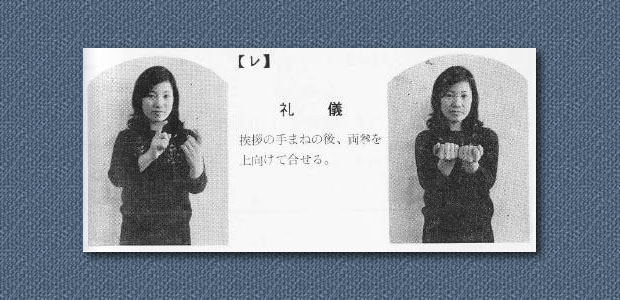 【レ】
礼儀
挨拶の手まねの後、両拳を
上向けて合せる。